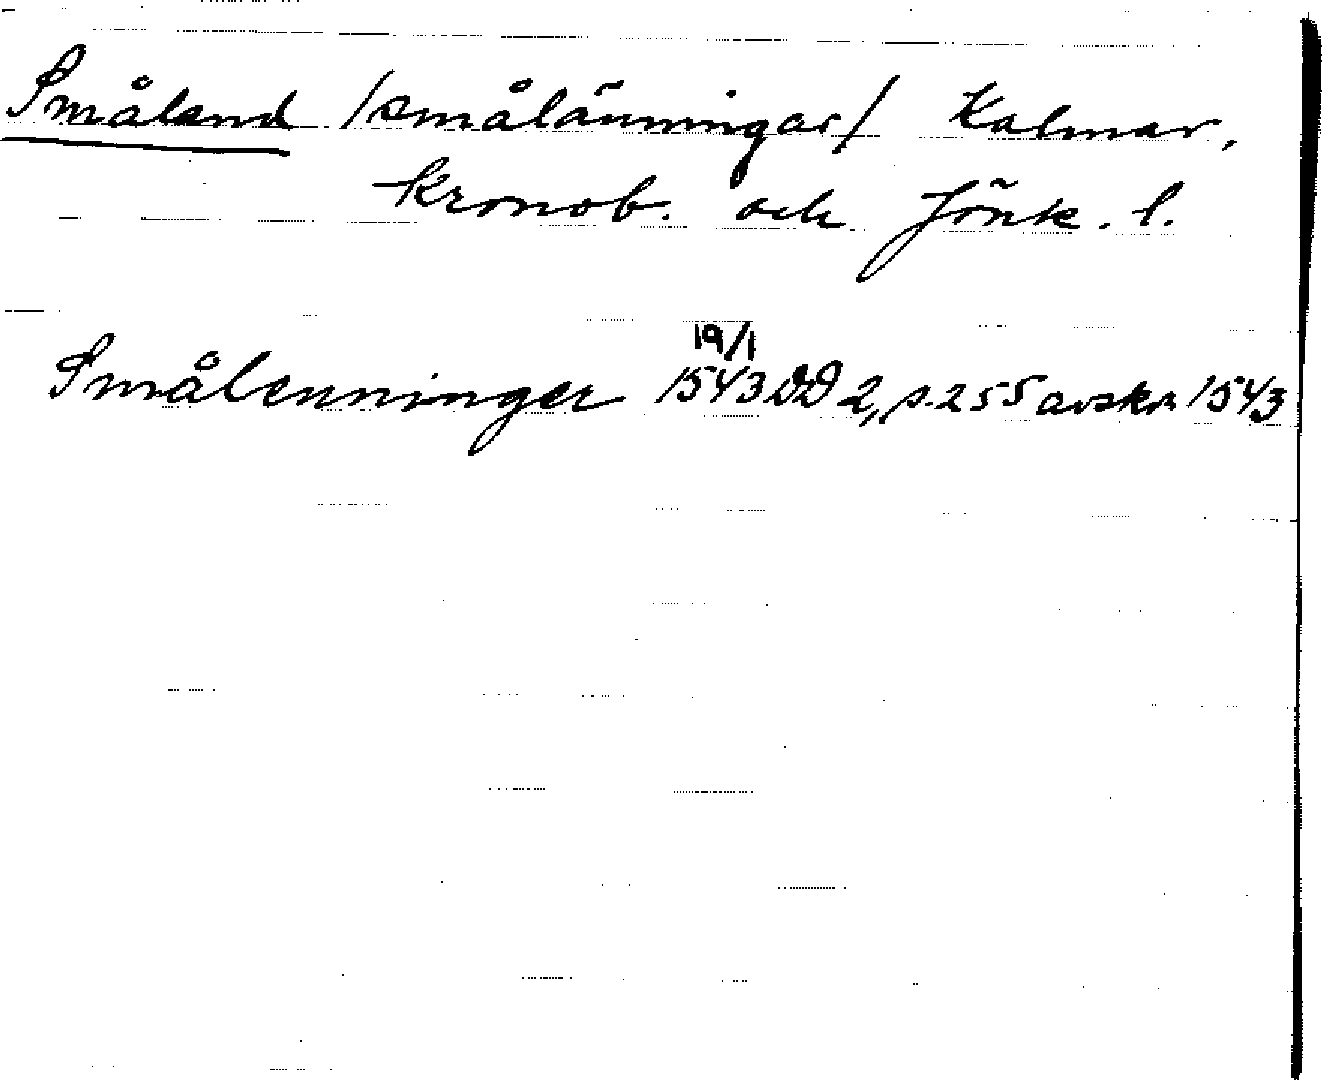 Småland /smålänningar/ Kalmar,
Kronob. och Jönk. l.
19/1
Smålenninger 1543 DD 2, s. 255 avskr. 1543